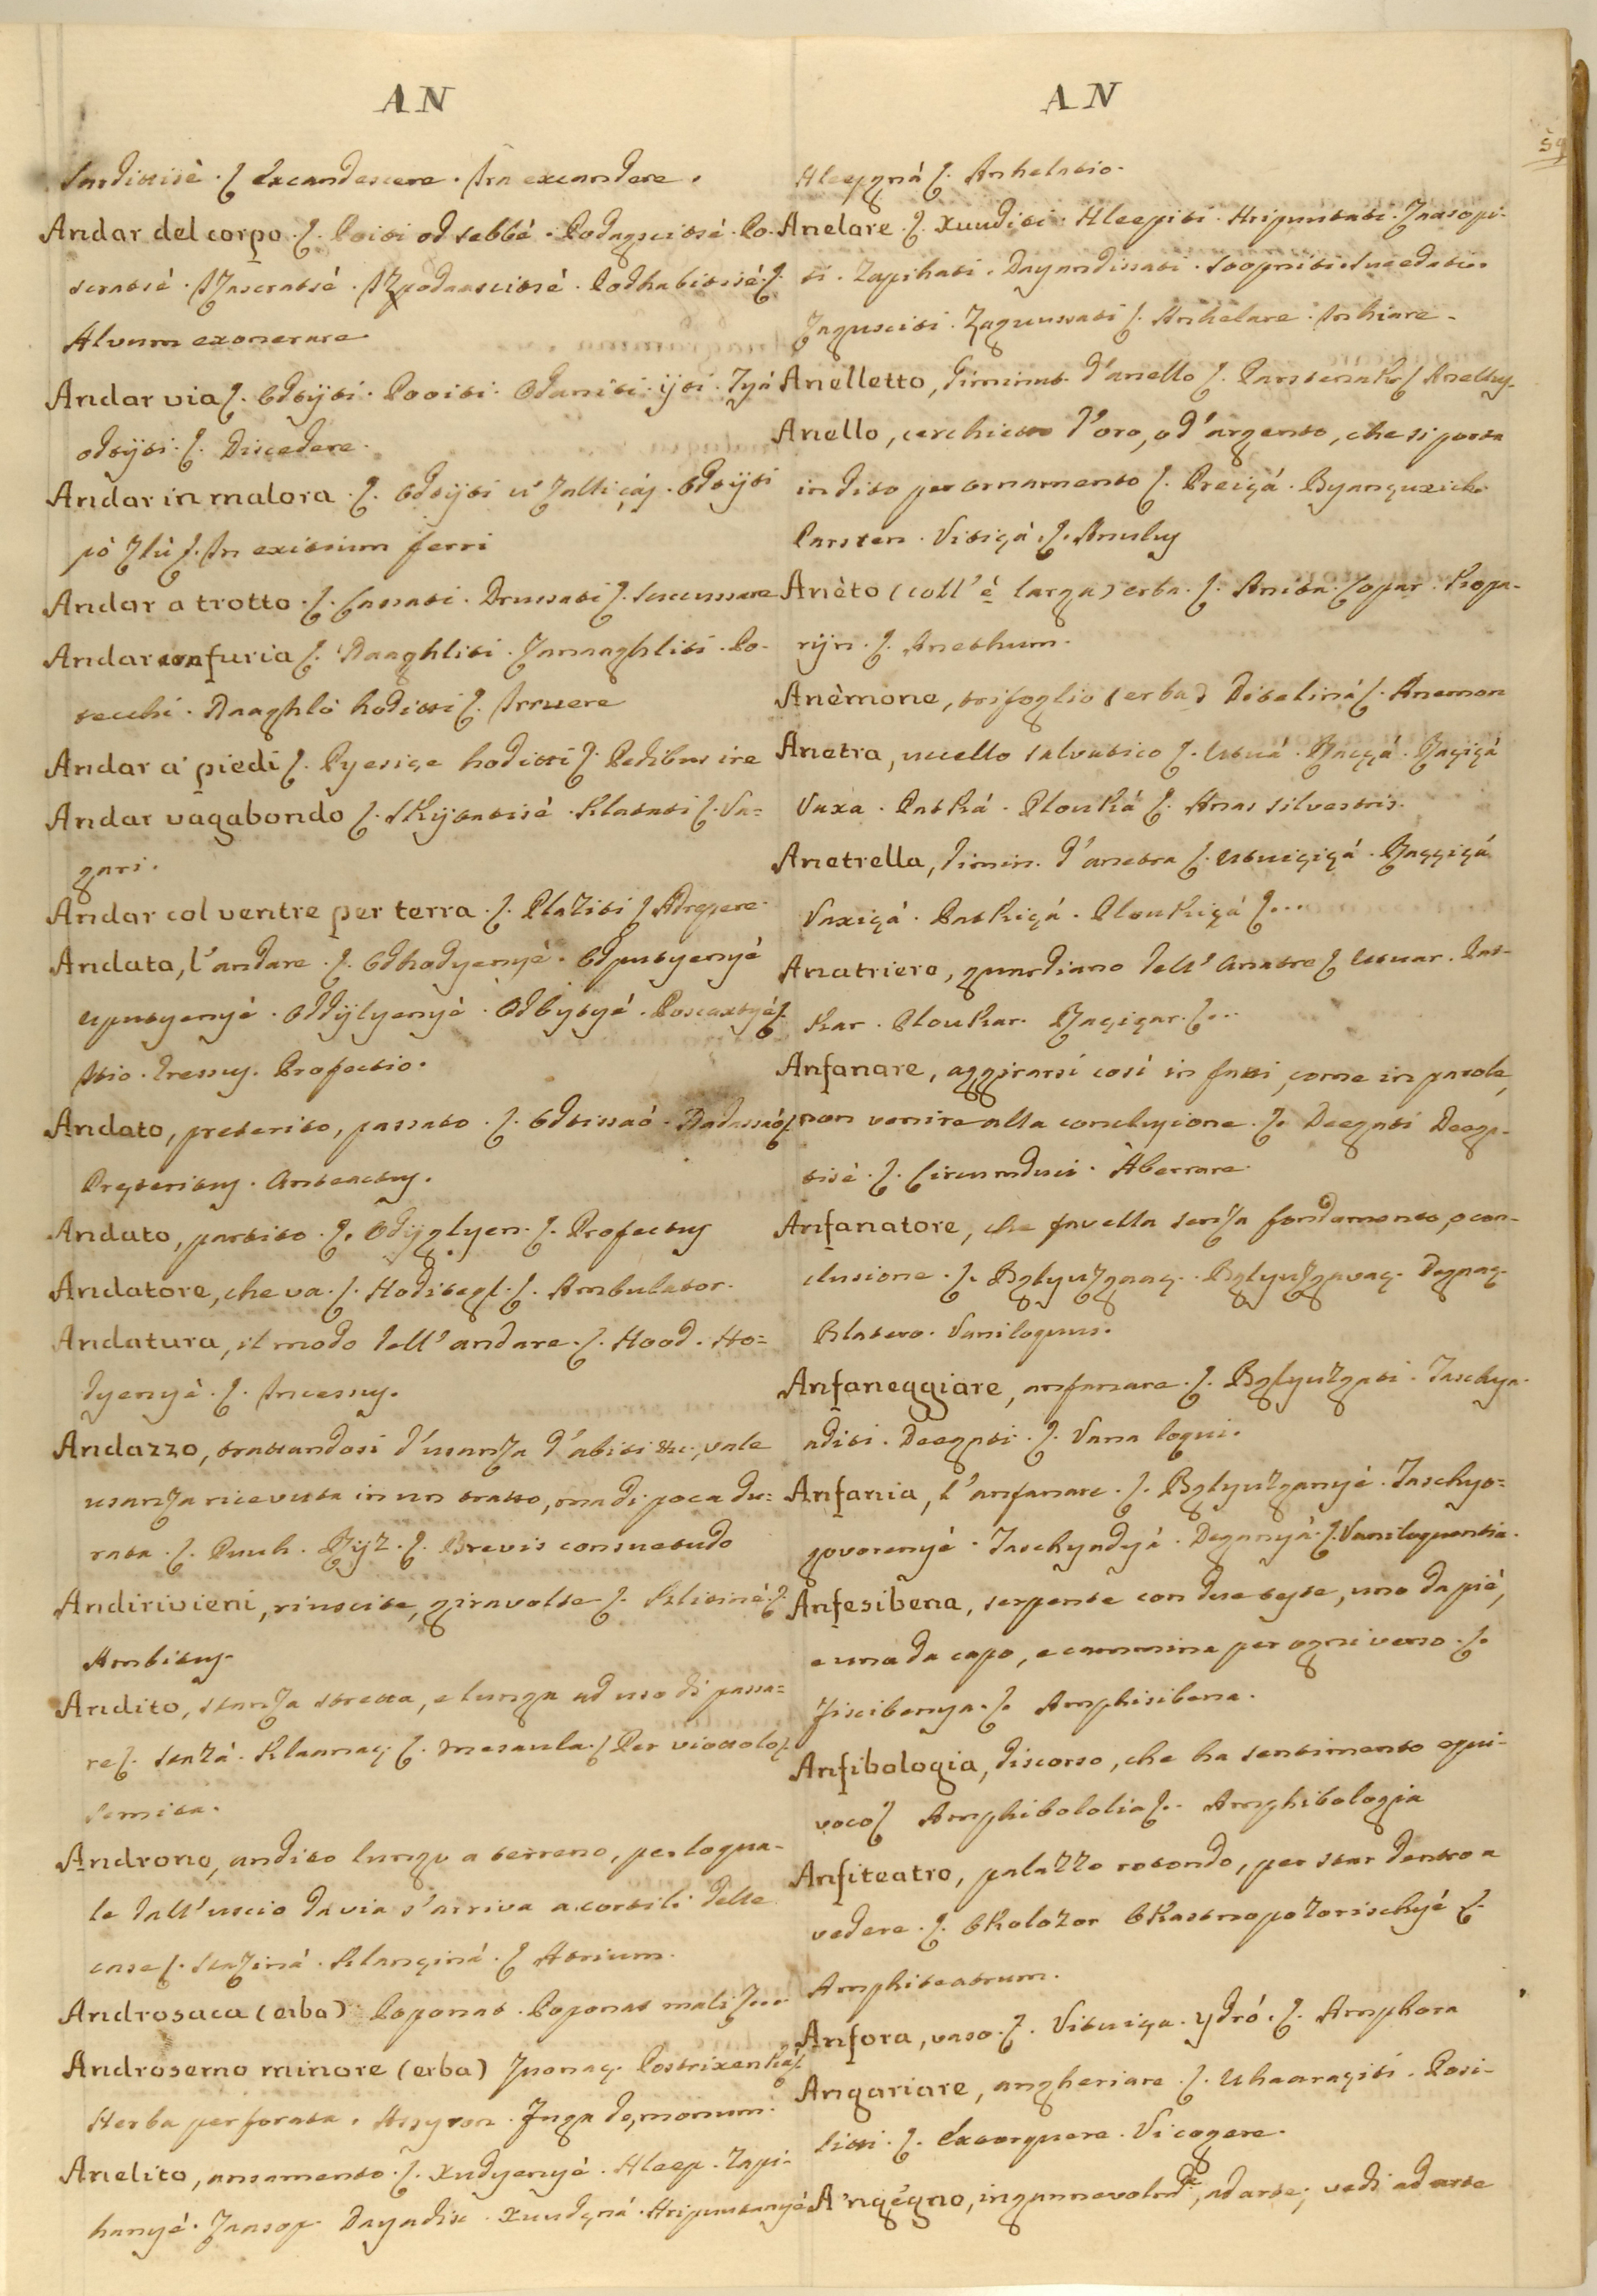 AN
Sardittisè. S. Excandescere. Ira excandere.
Andar del corpo. S. Poiti od sebbé. Podagscitsé. Po-
scratsé. Izascratsé. Izpodaascitsé. Podhabitisé. S.
Alvum exonerare
Andar via S. Odtÿti. Pooiti. Odaniti. ÿti. Tyá
odtÿti. S. Discedere.
Andar in malora. S. Odtÿti u' Zalli çáj. Odtÿti
pò Zlù S. In exitium ferri
Andar a trotto. S. Cassati. Drussati S. Succussare
Andar con furia S. Naaghliti. Zanaaghliti. Po-
tecchi. Naaghlò hoditti S. Irruere
Andar a' piedi S. Pyesiçe hoditti S. Pedibus ire
Andar vagabondo S. Skÿtatisè. Klatati S. Va=
gari.
Andar col ventre per terra. S. Plaziti S. Adrepere.
Andata, l'andare. S. Odhodyenyè. Odputyenyè
uputyenyé. Oddÿlyenyé. Odbytyé. Poscastyé S.
Itio. Gressus. Profectio.
Andato, preterito, passato. S. Odtissaó. Nadassaó S.
Preteritus. Anteactus.
Andato, partito. S. Odÿglyen. S. Profectus
Andatore, che va. S. Hoditegl. S. Ambulator.
Andatura, il modo dell' andare. S. Hood. Ho=
dyenyè. S. Incessus.
Andazzo, trattandosi d'usanza d'abiti &c., vale
usanza ricevuta in un tratto, ma di poca du=
rata. S. Puuh. Bÿz. S. Brevis consuetudo
Andirivieni, riuscite, giravolte S. Klitinè S.
Ambitus.
Andito, stanza stretta, e lunga ad uso di passa=
re S. Stazà. Klaanaç S. Mesaula. S. Per viottolo S.
Semita.
Androno, andito lungo a terreno, per lo qua-
le dall'uscio da via s'arriva a cortili delle
case S. Staziná. Klançiná. S. Atrium.
Androsaca (erba) Poponat. Poponat mali S...
Androsemo minore (erba) Zvonaç. Postrixenká S.
Herba perforata. Assyron. Fuga demonum.
Anelito, ansamento. S. Xudyenyè. Hleep. Zapi-
hanyé. Zaasop. Dayadix. Xuudgná. Hripuutanyè
AN
59
Hleepgná S. Anhelatio.
Anelare. S. Xuuditi. Hleepiti. Hripuutati. Zaasopi-
ti. Zapihati. Dayandissati. Soopniti. Suuedati.
Zagusciti. Zaguussati S. Anhelare. Inhiare.
Anelletto, diminut. d'anello S. Parstenak S. Anellus.
Anello, cerchietto d'oro, o d'argento, che si porta
in dito per ornamento S. Preiçá. Byanguxich.
Parsten. Vitiçá. S. Anulus
Anèto (coll' è larga) erba. S. Anita. Copar. Kopa-
rÿn. S. Anethum.
Anèmone, trifoglio (erba) Ditelinà S. Anemon
Anetra, uccello salvatico S. Utuá. Raççá. Raçiçá
Vaxa. Patká. Plouká S. Anas silvestris.
Anetrella, dimin. d'anetra S. Utuiçiçá. Raççiçá
Vaxiçá. Patkiçá. Ploukiçá S...
Anatriero, guardiano dell' anatre S. Utuar. Pat-
kar. Ploukar. Raçiçar. S...
Anfanare, aggirarsi così in fatti, come in parole,
non venire alla conclusione. S. Deegati Deega-
tisè. S. Circumduci. Aberrare.
Anfanatore, che favella senza fondamento, o con-
clusione. S. Bglyuzgaaç. Bglyuzgavaç. Degaaç
Blatero. Vaniloquus.
Anfaneggiare, anfanare. S. Bglyuzgati. Taschya-
aditi. Deegati. S. Vana loqui.
Anfania, l'anfanare. S. Bglyuzganyè. Taschyo=
govorenyé. Taschyadyá. Deganyá. S. Vaniloquentia.
Anfesibena, serpente con due teste, una da piè,
e una da capo, e cammina per ogni verso. S.
Fiscibenya. S. Amphisibena.
Anfibologia, discorso, che ha sentimento equi-
voco S. Amphibololia S. Amphibologia
Anfiteatro, palazzo rotondo, per star dentro a
vedere. S. Okolozor Okastnopozorischyé S.
Amphiteatrum.
Anfora, vaso. S. Vituiça. ydró. S. Amphora
Angariare, angheriare. S. Uhaaraçiti. Posi-
litti. S. Extorquere. Vi cogere.
A'ngégno, ingannevolmde, ad arte; vedi ad arte